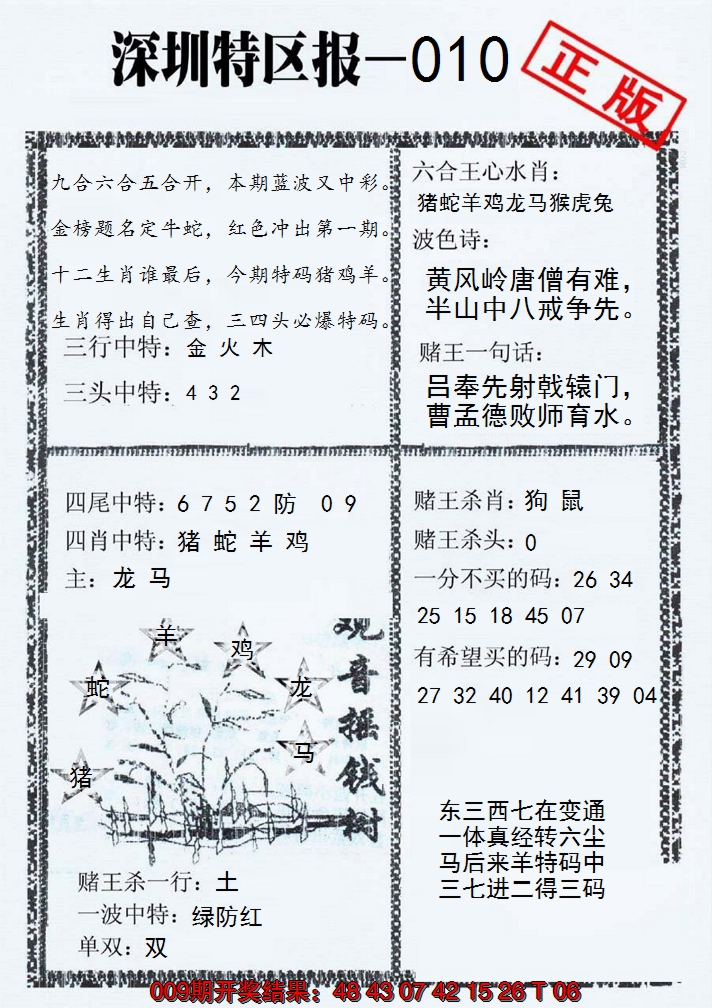 深圳特区报—010
正版
九合六合五合开，本期蓝波又中彩。
金榜题名定牛蛇，红色冲出第一期。
十二生肖谁最后，今期特码猪鸡羊。
生肖得出自己查，三四头必爆特码。
三行中特：金 火 木
三头中特：4 3 2
六合王心水肖：
猪蛇羊鸡龙马猴虎兔
波色诗：
黄风岭唐僧有难，
半山中八戒争先。
赌王一句话：
吕奉先射戟辕门，
曹孟德败师育水。
四尾中特：6 7 5 2 防 0 9
四肖中特：猪 蛇 羊 鸡
主：龙 马
羊
鸡
蛇
龙
马
猪
观音摇钱树
赌王杀一行：土
一波中特：绿防红
单双：双
赌王杀肖：狗 鼠
赌王杀头：0
一分不买的码：26 34
25 15 18 45 07
有希望买的码：29 09
27 32 40 12 41 39 04
东三西七在变通
一体真经转六尘
马后来羊特码中
三七进二得三码
009期开奖结果：48 43 07 42 15 26 T 06